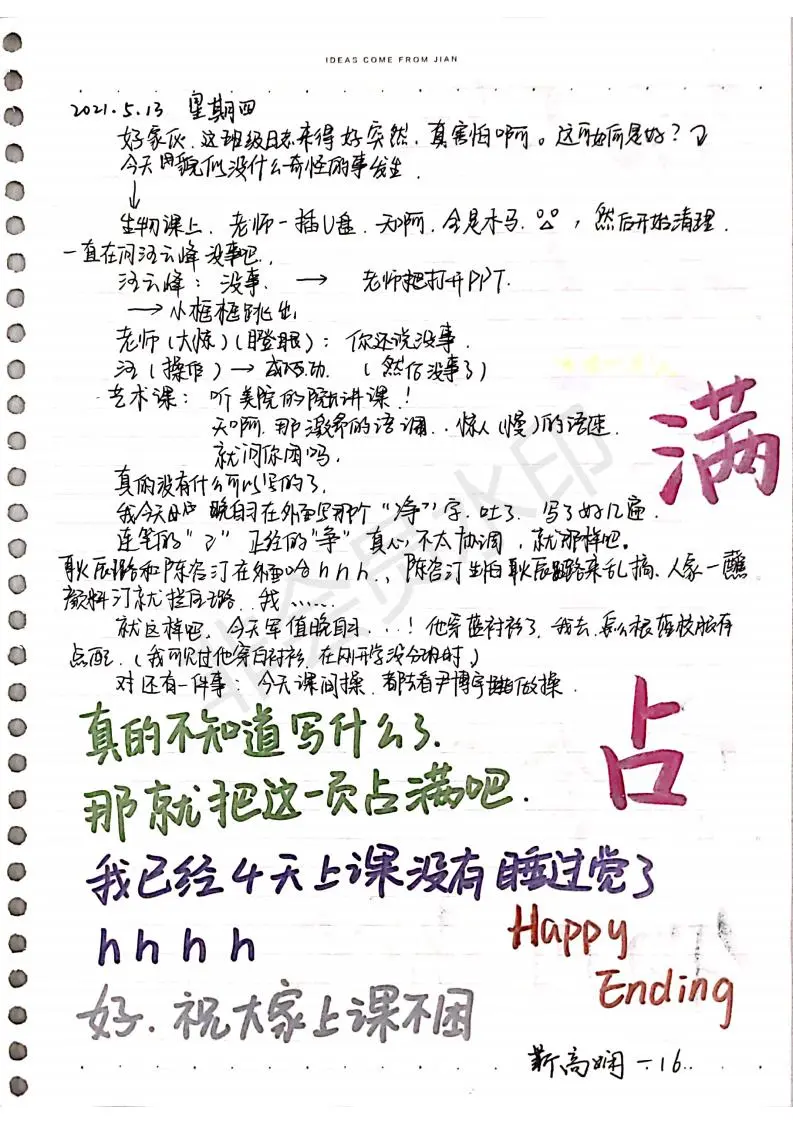 IDEAS COME FROM JIAN
2021.5.13 星期四
好家伙,这班级日志来得好突然,真害怕啊。这可如何是好?
今天貌似没什么奇怪的事发生.
↓
生物课上,老师一插U盘.天啊.全是木马.,然后开始清理.
一直在问汪云峰没事吧.
汪云峰:没事. → 老师把打开PPT.
→小框框跳出
老师(大怒)(瞪眼):你还说没事.
汪(操作)→成功.(然后没事了)
艺术课:听美院的讲课!
天啊.那激昂的语调..惊人(慢)的语速.
就问你困吗.
真的没有什么可以写的了.
我今天晚自习在外面写那个“净”字.吐了.写了好几遍.
连笔的“氵”正经的“争”真心不太协调,就那样吧。
和陈咨汀在外面hhh.,陈咨汀生怕来乱搞、人家一蘸
颜料汀就拦住璐.我……
就这样吧,今天军值晚自习...!他穿蓝衬衫了.我去.怎么跟蓝校服有
点配.(我可见过他穿白衬衫.在刚开学没分班时)
对还有一件事:今天课间操.都去看尹博宇做操.
满
占
真的不知道写什么了.
那就把这一页占满吧.
我已经4天上课没有睡过觉了
hhhh
Happy
Ending
好.祝大家上课不困
靳高娴一16..
非会员水印